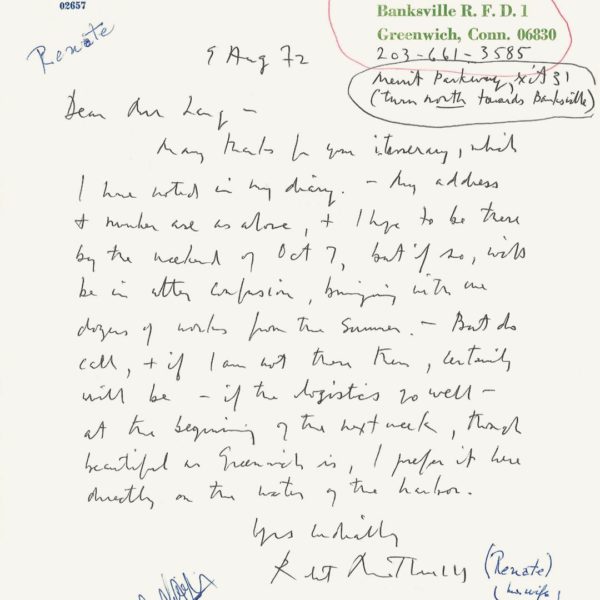 02657
Banksville R. F. D. 1
Greenwich, Conn. 06830
203-661-3585
Renate
9 Aug 72
Merrit Parkway, xit 31
(turn north towards Banksville)
Dear Mr Lang —
Many thanks for your itinerary, which
I have noted in my diary. — My address
+ number are as above, + I hope to be there
by the weekend of Oct 7, but if so, will
be in utter confusion, bringing with me
dozens of works from the summer. — But do
call, + if I am not there then, certainly
will be — if the logistics go well —
at the beginning of the next week, though
beautiful as Greenwich is, I prefer it here
directly on the water of the harbor.
Yrs cordially
Robt Motherwell
(Renate)
(his wife)